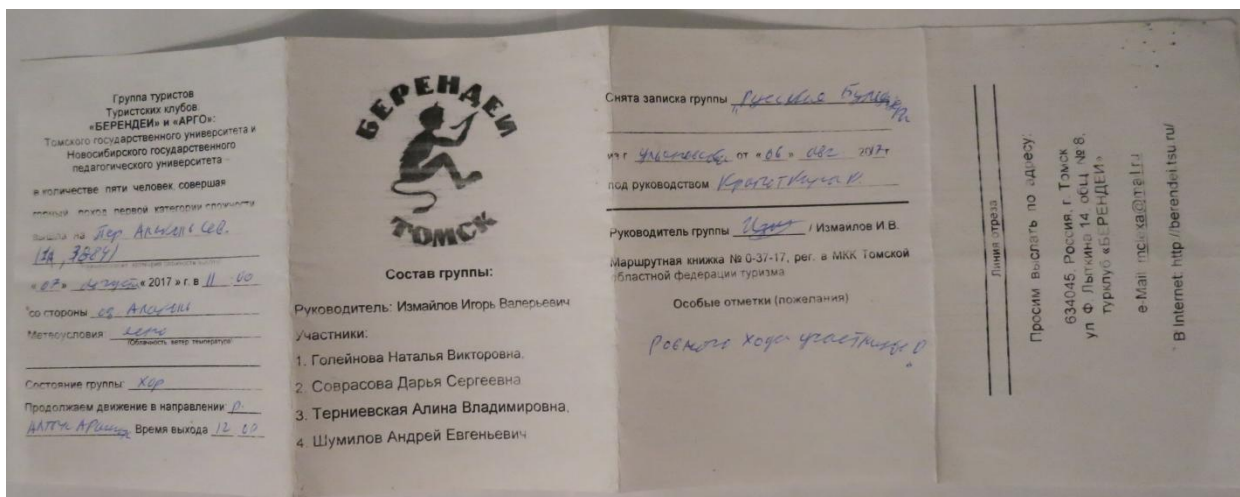 Группа туристов
Туристских клубов:
«БЕРЕНДЕИ» и «АРГО»:
Томского государственного университета и
Новосибирского государственного
педагогического университета
в количестве пяти человек, совершая
горный поход первой категории сложности
вышла на пер. Алакель Сев.
(1А, 3884)
«07» август «2017» г. в 11 00
со стороны оз. Алакель
Метеоусловия: ясно
(Облачность, ветер, температура)
Состояние группы: Хор
Продолжаем движение в направлении р.
Алтын Арашан Время выхода 12 00
БЕРЕНДЕИ
ТОМСК
Состав группы:
Руководитель: Измайлов Игорь Валерьевич
Участники:
1. Голейнова Наталья Викторовна,
2. Соврасова Дарья Сергеевна
3. Терниевская Алина Владимировна,
4. Шумилов Андрей Евгеньевич
Снята записка группы "Русский
из г. от «06» авг 2017г
под руководством
Руководитель группы / Измаилов И.В.
Маршрутная книжка № 0-37-17, рег. в МКК Томской
областной федерации туризма
Особые отметки (пожелания)
Ровного хода участникам
Линия отреза
Просим выслать по адресу:
634045. Россия, г. Томск
ул. Ф. Лыткина 14, общ. № 8,
турклуб «БЕРЕНДЕИ»
e-Mail:
В Internet: http://berendei.tsu.ru/